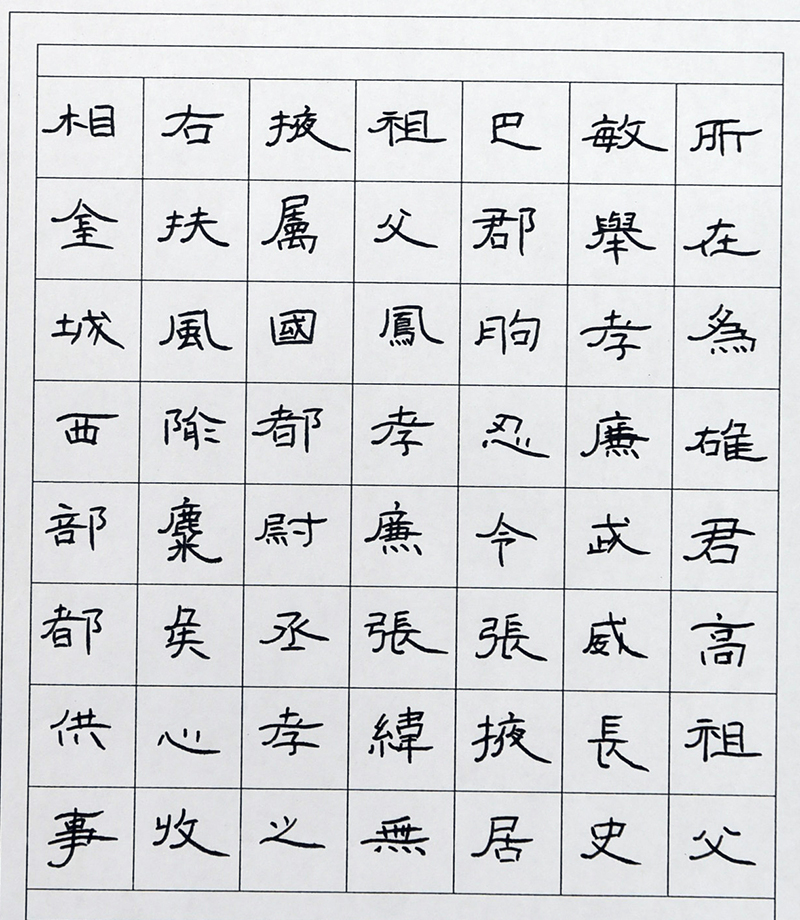 所在為雄君高祖父
敏舉孝廉武威長史
巴郡朐忍令張掖居
祖父鳳孝廉張緯無
掖屬國都尉丞孝之
右扶風隃麋侯心收
相金城西部都供事